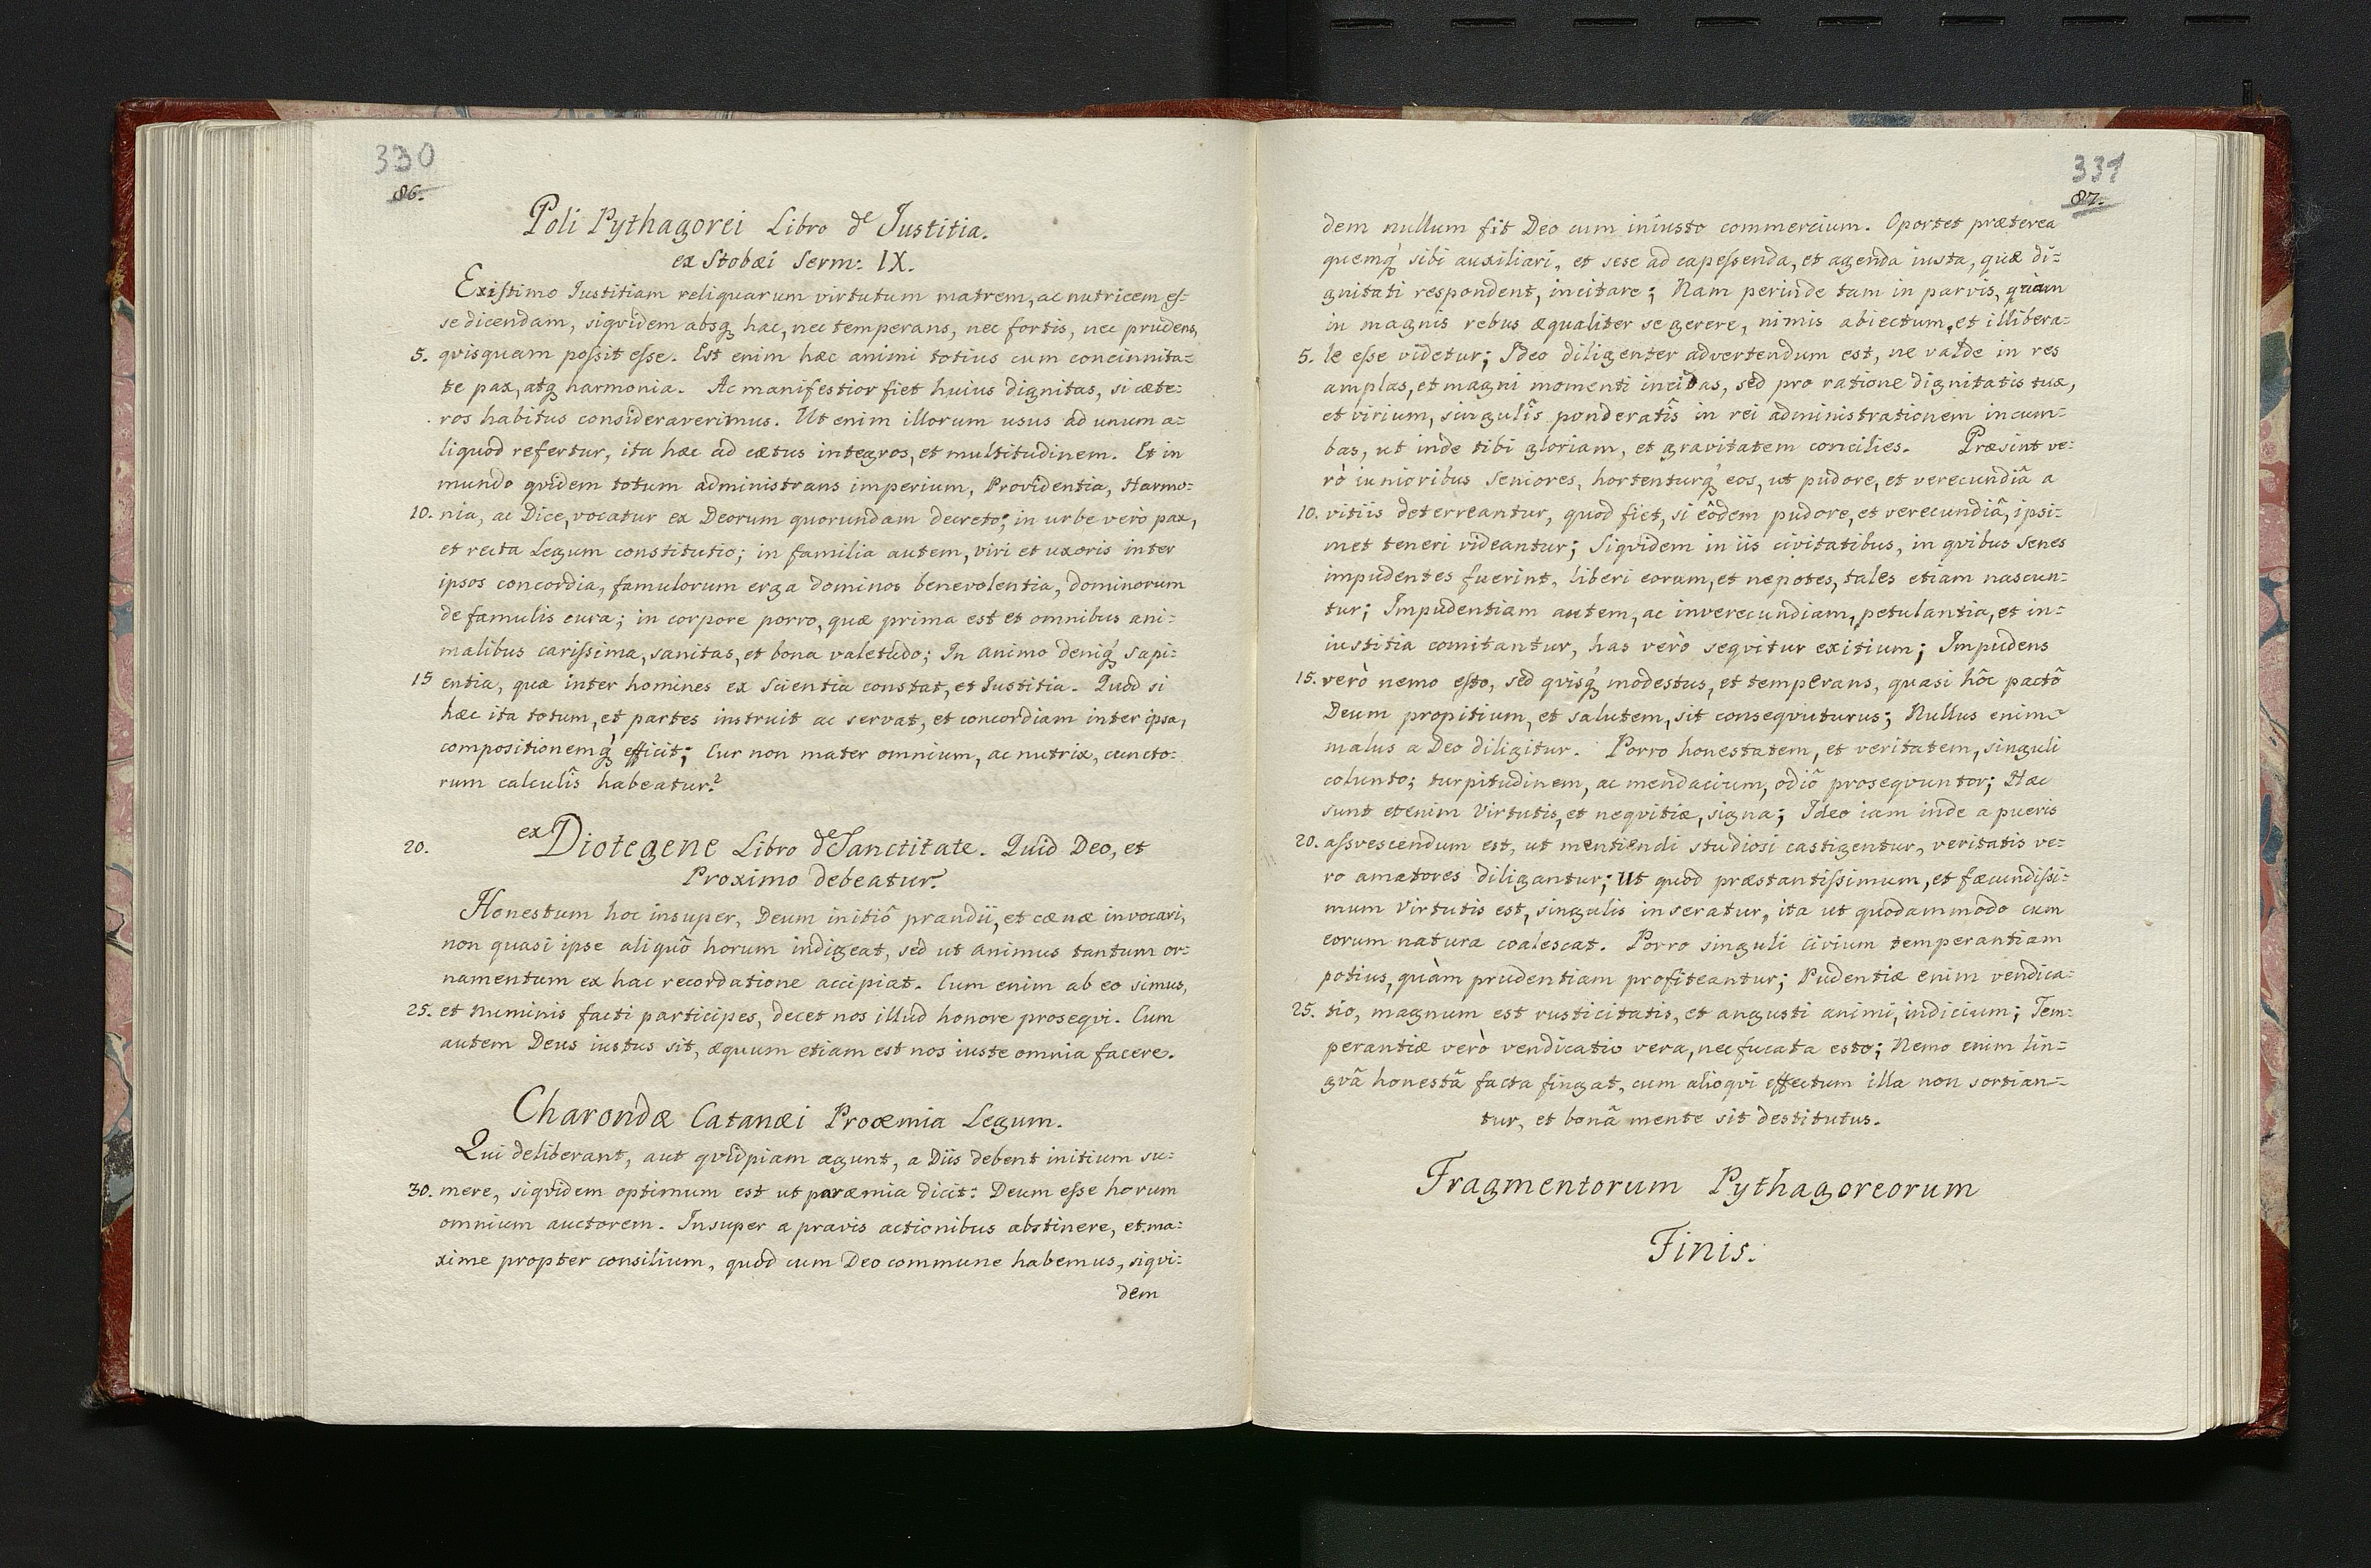 330
86.
Poli Pythagorei Libro de Justitia.
ex Stobæi Serm: IX.
Existimo Justitiam reliquarum virtutum matrem, ac nutricem es-
se dicendam, siqvidem absq; hac, nec temperans, nec fortis, nec prudens,
5. qvisquam possit esse. Est enim hæc animi totius cum concinnita=
te pax, atq; harmonia. Ac manifestior fiet huius dignitas, si cæte=
ros habitus consideraverimus. Ut enim illorum usus ad unum a=
liquod refertur, ita hæc ad cætus integros, et multitudinem. Et in
mundo qvidem totum administrans imperium, Providentia, Harmo=
10. nia, ac Dice, vocatur ex Deorum quorundam decreto; in urbe verò pax,
et recta Legum constitutio; in familia autem, viri et uxoris inter
ipsos concordia, famulorum erga dominos benevolentia, dominorum
de famulis cura; in corpore porro, quæ prima est et omnibus ani=
malibus carissima, sanitas, et bona valetudo; In animo deniq; sapi=
15 entia, quæ inter homines ex Scientia constat, et Justitia. Quod si
hæc ita totum, et partes instruit ac servat, et concordiam inter ipsa,
compositionemq; efficit; Cur non mater omnium, ac nutrix, cuncto=
rum calculîs habeatur?
20. ex Diotegene Libro de Sanctitate. Quid Deo, et
Proximo debeatur.
Honestum hoc insuper, Deum initiô prandii, et cænæ invocari,
non quasi ipse aliquô horum indigeat, sed ut animus tantum or=
namentum ex hac recordatione accipiat. Cum enim ab eo simus,
25. et Numinis facti participes, decet nos illud honore proseqvi. Cum
autem Deus iustus sit, æquum etiam est nos iuste omnia facere.
Charondæ Catanæi Proæmia Legum.
Qui deliberant, aut qvidpiam agunt, a Diis debent initium su=
30. mere, siqvidem optimum est ut paræmia dicit: Deum esse horum
omnium auctorem. Insuper a pravis actionibus abstinere, et ma=
xime propter consilium, quod cum Deo commune habemus, siqvi=
dem
331
87.
dem nullum fit Deo cum iniusto commercium. Oportet præterea
quemq; sibi auxiliari, et sese ad capessenda, et agenda iusta, quæ di=
gnitati respondent, incitare; Nam perinde tam in parvis, quàm
in magnis rebus æqualiter se gerere, nimis abiectum, et illibera=
5. le esse videtur; Ideo diligenter advertendum est, ne valde in res
amplas, et magni momenti incidas, sed pro ratione dignitatis tuæ,
et virium, singulîs ponderatîs in rei administrationem incum=
bas, ut inde tibi gloriam, et gravitatem concilies. Præsint ve=
rò iunioribus Seniores, hortenturq; eos, ut pudore, et verecundiâ a
10. vitiis deterreantur, quod fiet, si eôdem pudore, et verecundiâ, ipsi=
met teneri videantur; Siqvidem in iis civitatibus, in qvibus Senes
impudentes fuerint, liberi eorum, et nepotes, tales etiam nascun=
tur; Impudentiam autem, ac inverecundiam, petulantia, et in=
iustitia comitantur, has verò seqvitur exitium; Impudens
15. verò nemo esto, sed qvisq; modestus, et temperans, quasi hôc pactô
Deum propitium, et salutem, sit conseqvuturus; Nullus enim
malus a Deo diligitur. Porro honestatem, et veritatem, singuli
colunto; turpitudinem, ac mendacium, odiô proseqvuntor; Hæc
sunt etenim Virtutis, et neqvitiæ, signa; Ideo iam inde a pueris
20. assvescendum est, ut mentiendi studiosi castigentur, veritatis ve=
ro amatores diligantur; Ut quod præstantissimum, et fæcundissi=
mum Virtutis est, singulis inseratur, ita ut quodammodo cum
eorum natura coalescat. Porro singuli Civium temperantiam
potius, quàm prudentiam profiteantur; Pudentiæ enim vendica=
25. tio, magnum est rusticitatis, et angusti animi, indicium; Tem=
perantiæ verò vendicatio vera, nec fucata esto; Nemo enim lin=
gvâ honestâ facta fingat, cum alioqvi effectum illa non sortian=
tur, et bonâ mente sit destitutus.
Fragmentorum Pythagoreorum
Finis.